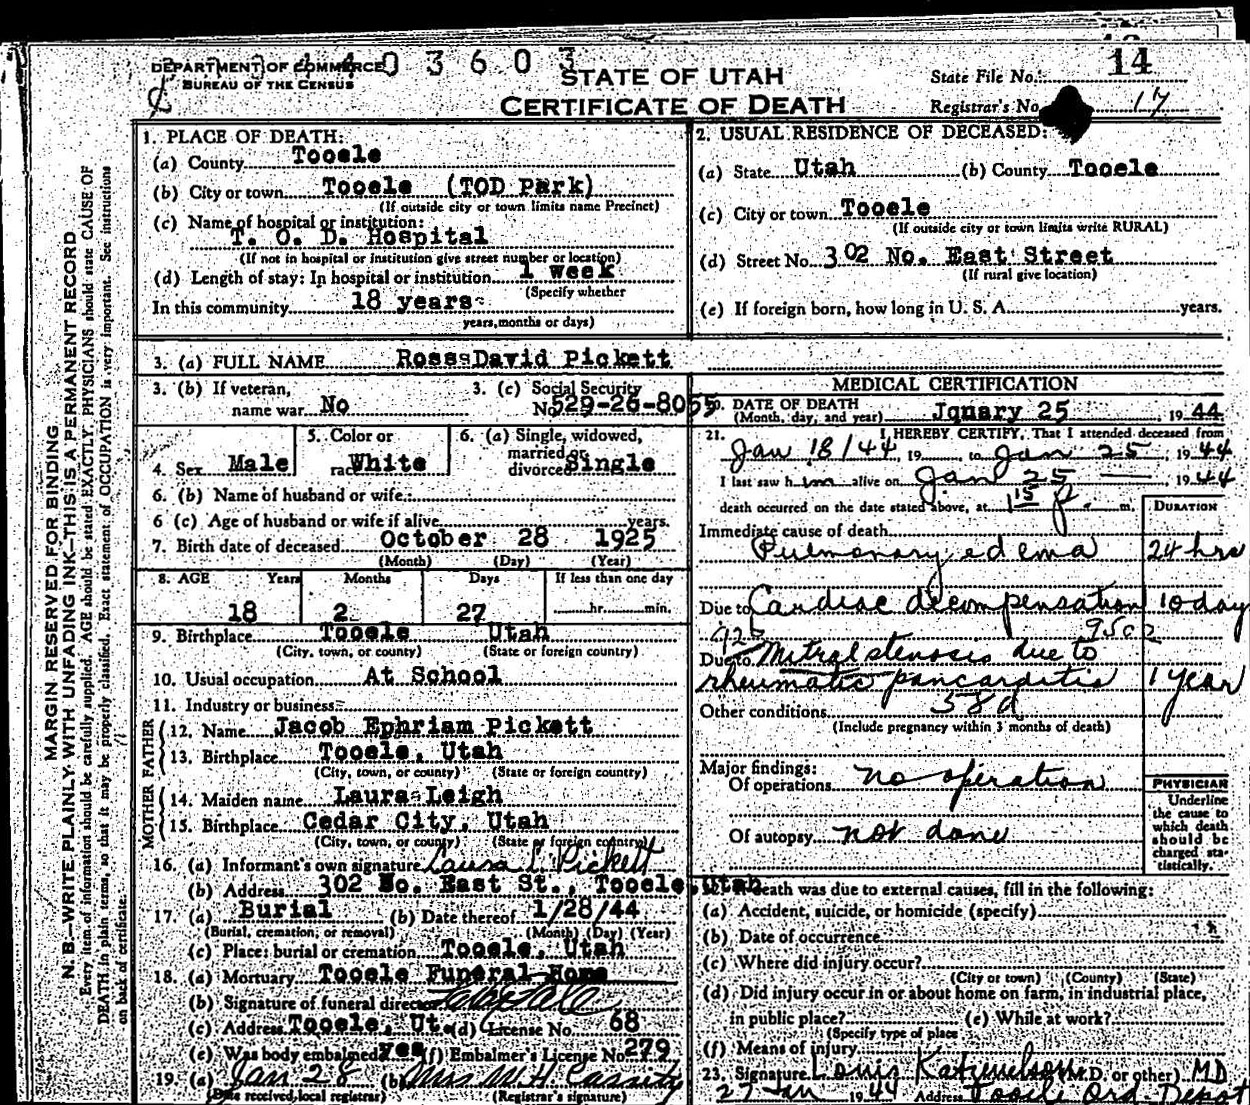 4403603
DEPARTMENT OF COMMERCE
BUREAU OF THE CENSUS
STATE OF UTAH
CERTIFICATE OF DEATH
State File No. 14
Registrar's No. 17
MARGIN RESERVED FOR BINDING.
N. B.—WRITE PLAINLY WITH UNFADING INK—THIS IS A PERMANENT RECORD
Every item of information should be carefully supplied. AGE should be stated EXACTLY. PHYSICIANS should state CAUSE OF
DEATH in plain terms, so that it may be properly classified. Exact statement of OCCUPATION is very important. See instructions
on back of certificate.
1. PLACE OF DEATH:
(a) County Tooele
(b) City or town Tooele (TOD Park)
(If outside city or town limits name Precinct)
(c) Name of hospital or institution:
T. O. D. Hospital
(If not in hospital or institution give street number or location)
(d) Length of stay: In hospital or institution 1 week
(Specify whether
In this community 18 years
years, months or days)
2. USUAL RESIDENCE OF DECEASED:
(a) State Utah (b) County Tooele
(c) City or town Tooele
(If outside city or town limits write RURAL)
(d) Street No. 302 No. East Street
(If rural give location)
(e) If foreign born, how long in U. S. A. years.
3. (a) FULL NAME Ross David Pickett
3. (b) If veteran,
name war No
3. (c) Social Security
No. 529-26-8055
4. Sex Male
5. Color or
race White
6. (a) Single, widowed,
married or
divorced Single
6. (b) Name of husband or wife:
6 (c) Age of husband or wife if alive years.
7. Birth date of deceased October 28 1925
(Month) (Day) (Year)
8. AGE Years Months Days If less than one day
18 2 27 hr. min.
9. Birthplace Tooele Utah
(City, town, or county) (State or foreign country)
10. Usual occupation At School
11. Industry or business
FATHER
12. Name Jacob Ephriam Pickett
13. Birthplace Tooele, Utah
(City, town, or county) (State or foreign country)
MOTHER
14. Maiden name Laura Leigh
15. Birthplace Cedar City, Utah
(City, town, or county) (State or foreign country)
16. (a) Informant's own signature Laura L. Pickett
(b) Address 302 No. East St., Tooele, Utah
17. (a) Burial (b) Date thereof 1/28/44
(Burial, cremation, or removal) (Month) (Day) (Year)
(c) Place: burial or cremation Tooele, Utah
18. (a) Mortuary Tooele Funeral Home
(b) Signature of funeral director
(c) Address Tooele, Ut. (d) License No. 68
(e) Was body embalmed? yes (f) Embalmer's License No. 279
19. (a) Jan 28 (b) Mrs W. H. Cassity
(Date received, local registrar) (Registrar's signature)
MEDICAL CERTIFICATION
20. DATE OF DEATH
(Month, day, and year) Jquary 25, 1944
21. I HEREBY CERTIFY, That I attended deceased from
Jan 18/44, 19 to Jan 25, 1944
I last saw him alive on Jan 25 — 1944
death occurred on the date stated above, at 1 15 p. m.
DURATION
Immediate cause of death
Pulmonary edema 24 hrs
Due to Cardiac decompensation 10 day
95c2
Due to Mitral stenosis due to
rheumatic pancarditis 1 year
Other conditions 58d
(Include pregnancy within 3 months of death)
Major findings:
Of operations no operation
Of autopsy not done
PHYSICIAN
Underline
the cause to
which death
should be
charged sta-
tistically.
death was due to external causes, fill in the following:
(a) Accident, suicide, or homicide (specify)
(b) Date of occurrence
(c) Where did injury occur?
(City or town) (County) (State)
(d) Did injury occur in or about home on farm, in industrial place,
in public place? (e) While at work?
(Specify type of place
(f) Means of injury
23. Signature Louis Katzenelson (M.D. or other) MD
27 Jan 1944 Address Tooele Ord. Depot